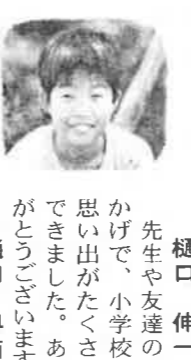 樋口 伸一
先生や友達の
かげで、小学校
思い出がたくさ
できました。あ
がとうございます